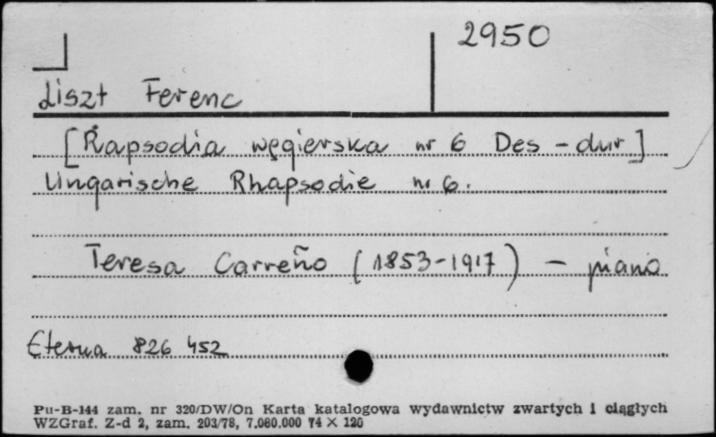 2950
Liszt Ferenc
[Rapsodia węgierska nr 6 Des-dur]
Ungarische Rhapsodie nr 6.
Teresa Carreño (1853-1917) - piano
Eterna 826 452
Pu-B-144 zam. nr 320/DW/On Karta katalogowa wydawnictw zwartych i ciągłych
WZGraf. Z-d 2, zam. 203/78, 7.080.000 74 × 120